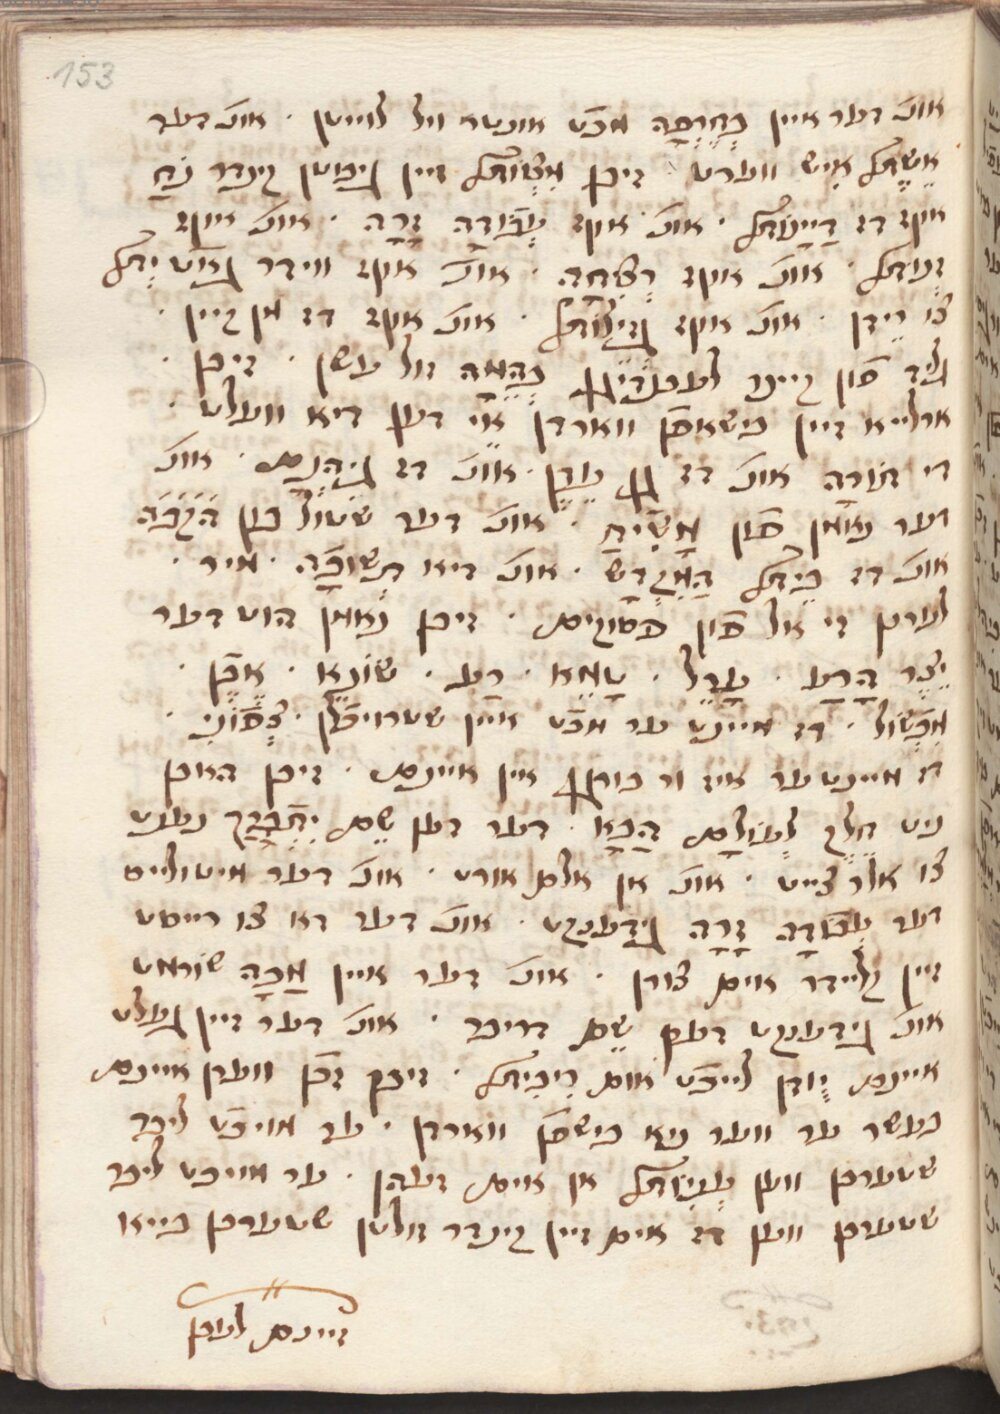 153
אונ' דער איין בְּחֲרָטָה מכֿט אונטר וויל לווייטן · אונ' דער
אֵשֶׁת אִיש ווערט · זיבן מִצְווֹת זיין גיבוטן קינדר נֹחַ
אויף דז דַייָנוּת · אונ' אויף עֲבוֹדָה זָרָה · אונ' אויף
זְנוּת · אונ' אויף רְצִיחָה · אונ' אויף ווידר גאט ית'
צו רידן · אונ' אויף גְזֵילוֹת · אונ' אויף דז מן קיין
גליד פֿון קיינר לעבנדיגן בְּהֵמָה זול עשן · זיבן
ארלייא זיין בישאפֿן ווארדן אֵי דען דיא וועלט ·
די תּוֹרָה אונ' דז גן עֵדֶן · אונ' דז גֵיהִנָם · אונ'
דער נאמן פֿון מָשִׁיחַ · אונ' דער שטול פֿון הֲלָכָה
אונ' דז בֵּית הַמִקְדָשׁ · אונ' דיא תְּשׁוּבָה · מיר
לערנן די אל פֿון פסוקים · זיבן נאמן הוט דער
יֵצֶר הָרַע · עָרֵל · טָמֵא · רַע · שׂוֹנֵא · אֶבֶן ·
מִכְשׁוֹל · דז מיינט ער מכֿט איין שטרויכֿלן · צְפוֹנִי ·
דז מיינט ער איז ור בורגן אין איינם · זיבן האבן
ניט חֵלֶק לְעוֹלָם הַבָּא · דער דען שֵׁם יִתְבָּרַךְ נענט
צו אלר צייט · אונ' אן אלם אורט · אונ' דער
דער עֲבוֹדָה זָרָה גידענקט · אונ' דער דא צו רייסט
זיין קליידר אויס צורן · אונ' דער איין מַכָּה
אונ' גידענקט דעם שֵׁם דריבר · אונ' דער זיין געלט
איינם יודן לייכֿט אום רִיבִּית · זיבן זכֿן ווערן איינם
בעשר ער ווער ניא בישפֿן ווארדן · ער מויכֿט ליבר
שטערבן ווען עֲנִיוּת אן אים זעהן · ער מויכֿט ליבר
שטערבן ווען דז אים זיין קינדר זולטן שטערבן בייא
זיינם לעבן